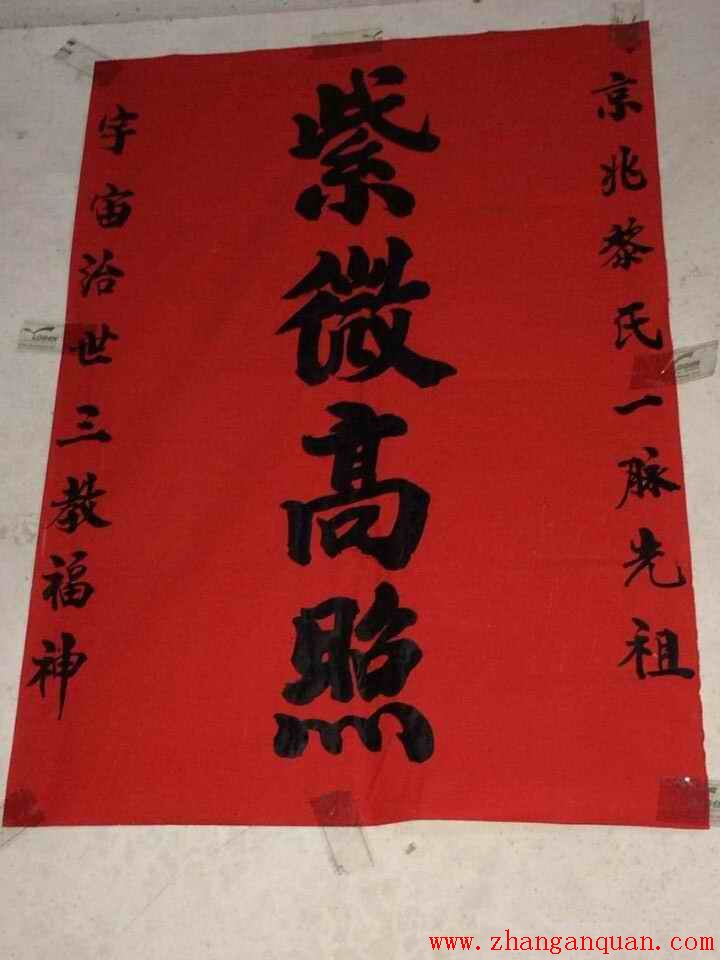 京兆黎氏一脉先祖
紫微高照
宇宙治世三教福神
www.zhanganquan.com